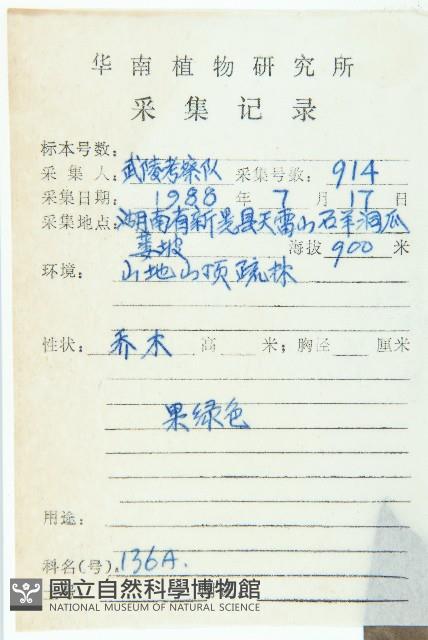 华南植物研究所
采集记录
标本号数:
采集人: 武陵考察队 采集号数: 914
采集日期: 1988 年 7 月 17 日
采集地点: 湖南省新晃县天雷山石羊洞瓜
蒌坡 海拔 900 米
环境: 山地山顶疏林
性状: 乔木 高 米; 胸径 厘米
果绿色
用途:
科名(号) 136A.
國立自然科學博物館
NATIONAL MUSEUM OF NATURAL SCIENCE